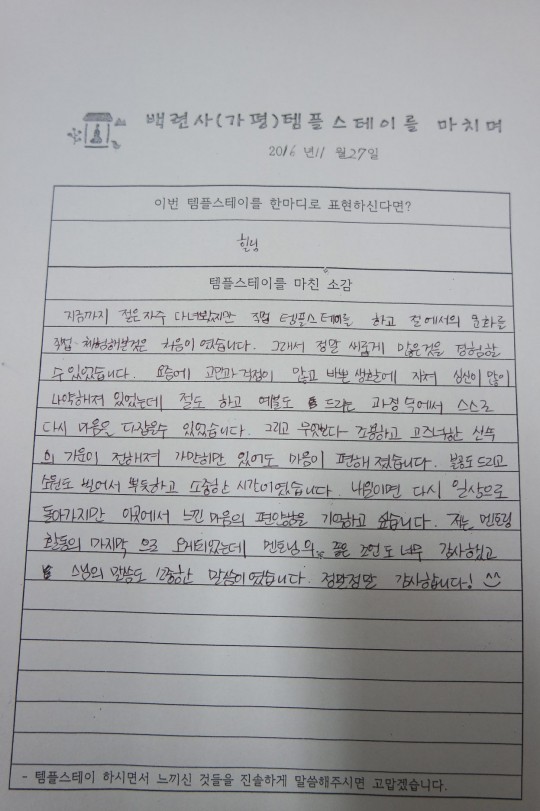 백련사(가평)템플스테이를 마치며
2016 년 11 월 27일
이번 템플스테이를 한마디로 표현하신다면?
힐링
템플스테이를 마친 소감
지금까지 절은 자주 다녀봤지만 직접 템플스테이를 하고 절에서의 문화를
직접 체험해본것은 처음이였습니다. 그래서 정말 새롭게 많은것을 경험할
수 있었습니다. 요즘에 고민과 걱정이 많고 바쁜 생활에 지쳐 심신이 많이
나약해져 있었는데 절도 하고 예불도 드리는 과정 속에서 스스로
다시 마음을 다잡을수 있었습니다. 그리고 무엇보다 조용하고 고즈넉한 산속
의 기운이 전해져 가만히만 있어도 마음이 편해 졌습니다. 불공도 드리고
소원도 빌어서 뿌듯하고 소중한 시간이였습니다. 내일이면 다시 일상으로
돌아가지만 이곳에서 느낀 마음의 편안함을 기억하고 싶습니다. 저는 멘토링
활동의 마지막 으로 오게되었는데 멘토님의 좋은 조언도 너무 감사했고
스님의 말씀도 소중한 말씀이였습니다. 정말정말 감사합니다! ^^
- 템플스테이 하시면서 느끼신 것들을 진솔하게 말씀해주시면 고맙겠습니다.